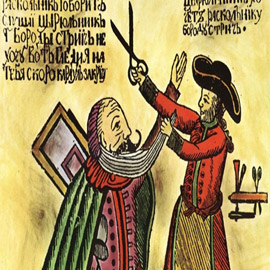 РАСКОЛНИКЪ ГОВОРИТЪ
СЛУШАЙ ЦЫРЮЛНИКЪ
Я БОРОДЫ СТРИЧЬ НЕ
ХОЧУ ВОТЪ ГЛЕДИ НА
ТЕБЯ СКОРО КАРАУЛ ЗАКРИЧУ
ЦЫРЮЛНИКЪ ХО
ЧЕТЪ РАСКОЛНИКУ
БОРОДУ СТРИЧЬ